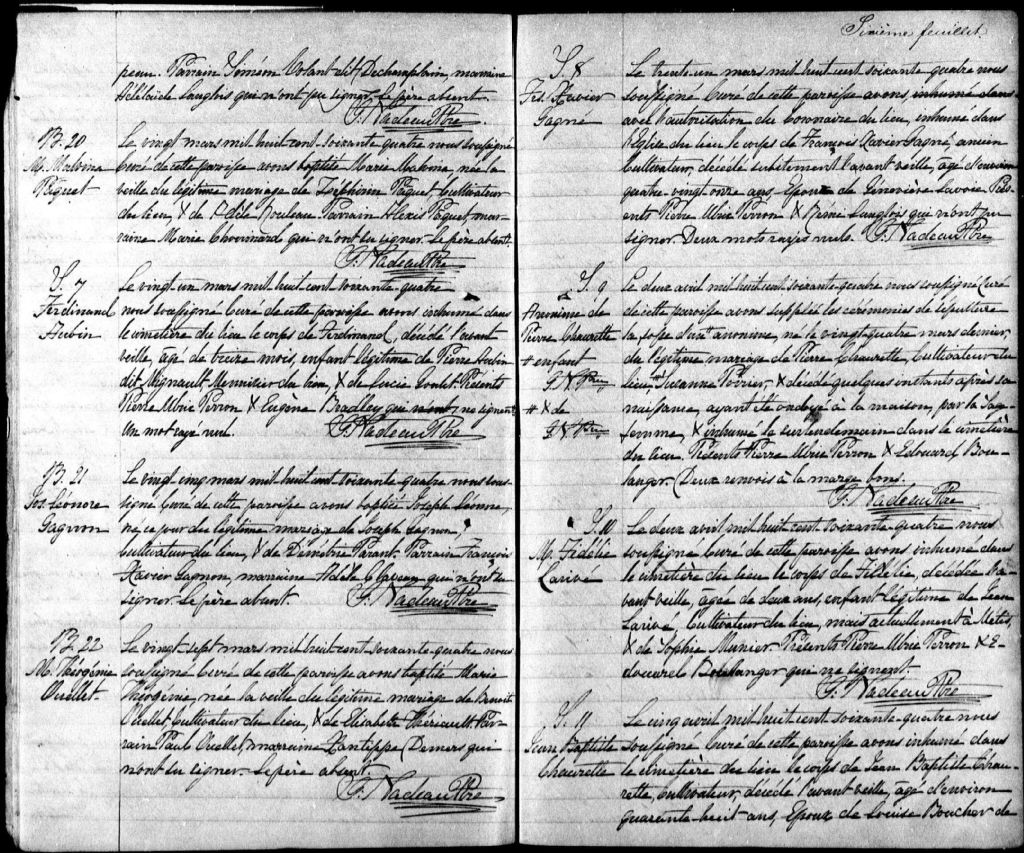 peau. Parrain Siméon Volant dit Dechamplain, marraine
Adélaïde Langlois qui n'ont pu signer. Le père absent.
G. Nadeau Ptre
B. 20
M. Malvina
Paquet
Le vingt mars mil huit cent soixante quatre nous soussigné
Curé de cette paroisse avons baptisé Marie Malvina, née la
veille du légitime mariage de Zéphirin Paquet, Cultivateur
du lieu, & de Adèle Rouleau. Parrain Alexis Paquet, mar-
raine Marie Chouinard qui n'ont su signer. Le père absent.
G. Nadeau Ptre
S. 7
Ferdinand
Aubin
Le vingt-un mars mil huit cent soixante-quatre
nous soussigné Curé de cette paroisse avons inhumé dans
le cimetière du lieu le corps de Ferdinand, décédé l'avant
veille, âgé de treize mois, enfant légitime de Pierre Aubin
dit Mignault Menuisier du lieu, & de Lucie Goulet. Présents
Pierre Ubric Perron & Eugène Bradley qui n'ont, ne signent
Un mot rayé nul.
G. Nadeau Ptre
B. 21
Jos. Léonore
Gagnon
Le vingt cinq mars mil huit cent soixante quatre nous sous-
signé Curé de cette paroisse avons baptisé Joseph Léonore,
né ce jour du légitime mariage de Joseph Gagnon,
Cultivateur du lieu, & de Démétrie Parant. Parrain François
Xavier Gagnon, marraine Adèle Claveau qui n'ont su
signer. Le père absent.
G. Nadeau Ptre
B. 22
M. Théogénie
Ouellet
Le vingt sept mars mil huit cent soixante-quatre nous
soussigné Curé de cette paroisse avons baptisé Marie
Théogénie, née la veille du légitime mariage de Benoit
Ouellet, Cultivateur du lieu, & de Elisabeth Thériault. Par-
rain Paul Ouellet, marraine Xantippe Demers qui
n'ont su signer. Le père absent.
G. Nadeau Ptre
Sixième feuillet.
S. 8
Frs. Xavier
Gagné
Le trente-un mars mil huit cent soixante quatre nous
soussigné Curé de cette paroisse avons, inhumé dans
avec l'autorisation du Coronaire du lieu, inhumé dans
l'Eglise du lieu le corps de François Xavier Gagné, ancien
Cultivateur, décédé subitement l'avant veille, âgé d'environ
quatre vingt onze ans, Epoux de Geneviève Lavoie. Pré-
sents Pierre Ubric Perron & Rémi Langlois qui n'ont pu
signer. Deux mots rayés nuls.
G. Nadeau Ptre
S. 9
Anonime de
Pierre Chaurette
# enfant
G. N. Ptre
# & de
G. N. Ptre
Le deux avril mil huit cent soixante-quatre nous soussigné Curé
de cette paroisse avons suppléé les cérémonies de sépulture
la fosse d'un # anonime, né le vingt quatre mars dernier,
du légitime mariage de Pierre Chaurette, Cultivateur du
lieu, # Suzanne Poirier, & décédé quelques instants après sa
naissance, ayant été ondoyé à la maison, par la Sage
femme, & inhumé le surlendemain dans le cimetière
du lieu. Présents Pierre Ubric Perron & Edouard Bou-
langer. (Deux renvois à la marge bons.
G. Nadeau Ptre
S. 10
M. Fidélie
Larivé
Le deux avril mil huit cent soixante-quatre nous
soussigné Curé de cette paroisse avons inhumé dans
le cimetière du lieu le corps de Fidélie, décédée l'a-
vant veille, âgée de deux ans, enfant légitime de Jean
Larivé, Cultivateur du lieu, mais actuellement à Métis,
& de Sophie Munier. Présents Pierre Ubric Perron & E-
douard Boulanger qui ne signent.
G. Nadeau Ptre
S. 11
Jean Baptiste
Chaurette
Le cinq avril mil huit cent soixante-quatre nous
soussigné Curé de cette paroisse avons inhumé dans
le cimetière du lieu le corps de Jean Baptiste Chau-
rette, Cultivateur, décédé l'avant veille, âgé d'environ
quarante-huit ans, Epoux de Louise Boucher de